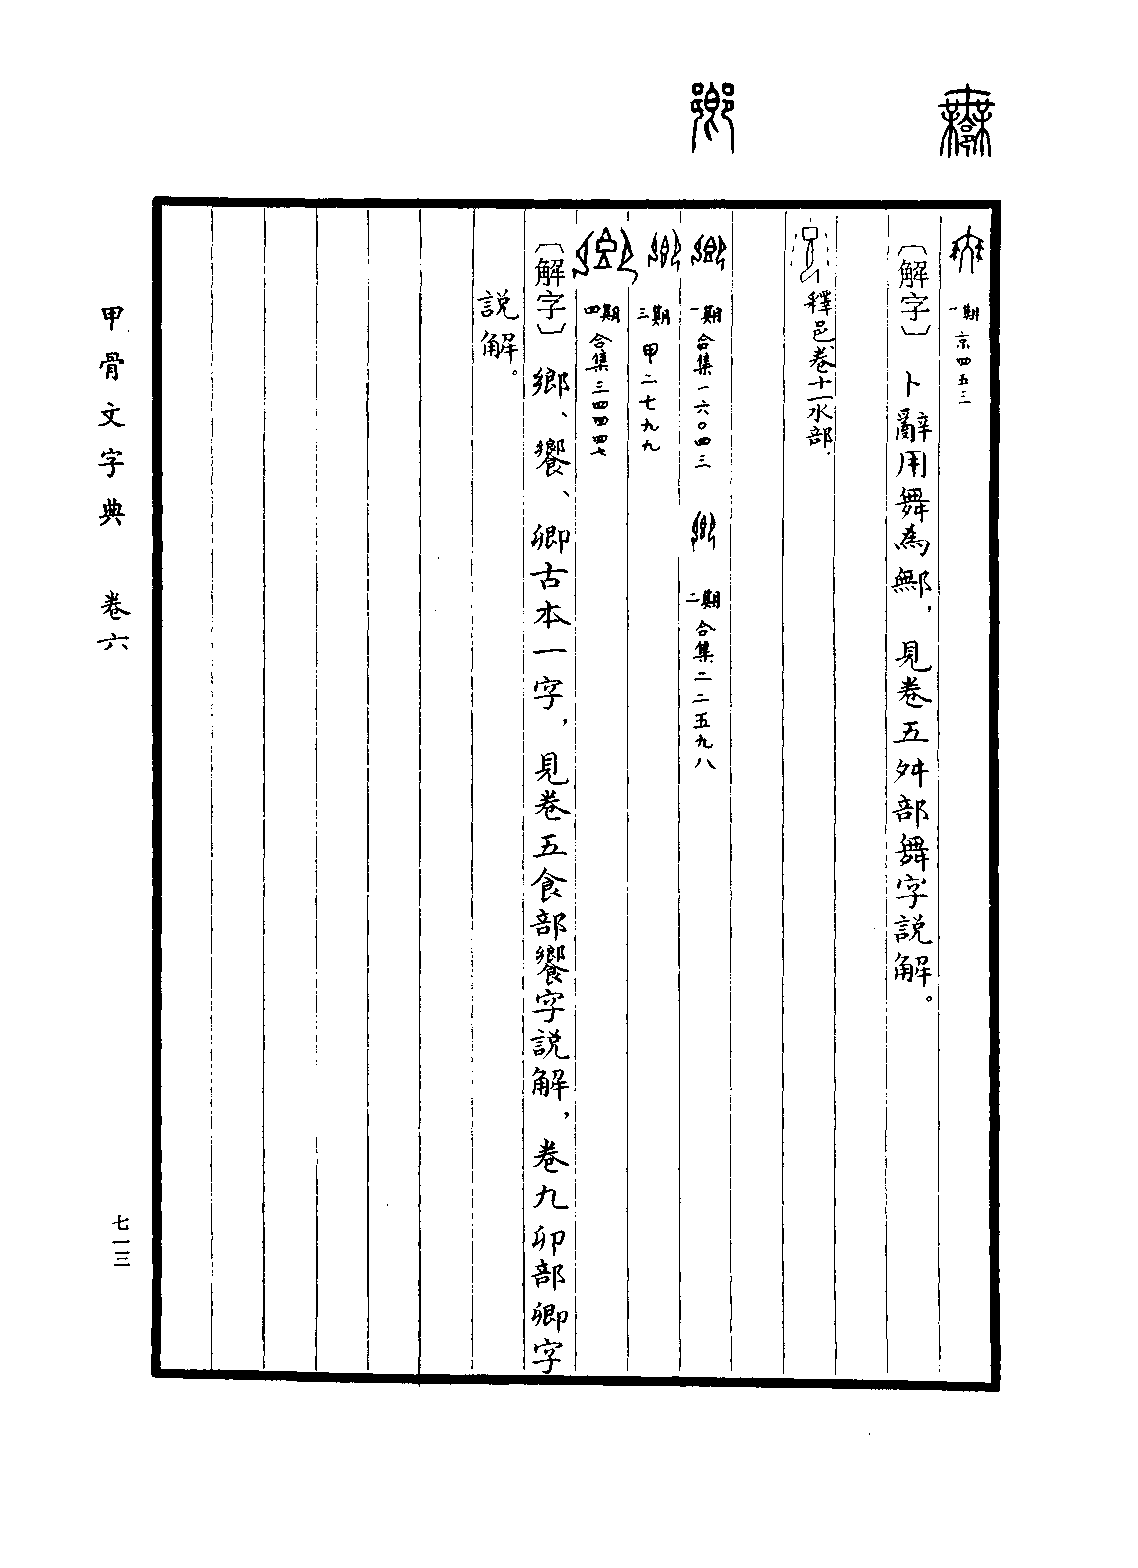 一期 京四五三
〔解字〕卜辭用舞為鄦，見卷五舛部舞字說解。
釋邑卷十一水部．
一期 合集一六〇四三 二期 合集二二五九八
三期 甲二七九九
四期 合集三四四四七
〔解字〕鄉、饗、卿古本一字，見卷五食部饗字說解，卷九卯部卿字
說解。
甲骨文字典 卷六
七一三